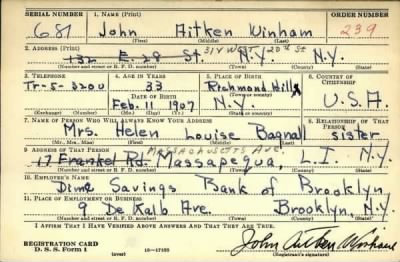 SERIAL NUMBER 1. NAME (Print) ORDER NUMBER
681 John Aitken Winham 239
(First) (Middle) (Last)
2. ADDRESS (Print)
314 WEST 120th St
132 E. 28 St. N.Y. N.Y.
(Number and street or R. F. D. number) (Town) (County) (State)
3. TELEPHONE 4. AGE IN YEARS 5. PLACE OF BIRTH 6. COUNTRY OF CITIZENSHIP
Tr-5-3200 33 Richmond Hill
DATE OF BIRTH (Town or county)
Feb. 11 1907 N.Y. U.S.A.
(Exchange) (No.) (Mo.) (Day) (Yr.) (State or country)
7. NAME OF PERSON WHO WILL ALWAYS KNOW YOUR ADDRESS 8. RELATIONSHIP OF THAT PERSON
Mrs. Helen Louise Bagnall sister
(Mr., Mrs., Miss) (First) (Middle) (Last)
9. ADDRESS OF THAT PERSON
MASSACHUSETTS AVE.
17 Frankel Rd. Massapequa, L.I. N.Y.
(Number and street or R. F. D. number) (Town) (County) (State)
10. EMPLOYER'S NAME
Dime Savings Bank of Brooklyn
11. PLACE OF EMPLOYMENT OR BUSINESS
9 De Kalb Ave. Brooklyn, N.Y.
(Number and street or R. F. D. number) (Town) (County) (State)
I AFFIRM THAT I HAVE VERIFIED ABOVE ANSWERS AND THAT THEY ARE TRUE.
REGISTRATION CARD
D. S. S. Form 1 (over) 16—17105 John Aitken Winham
(Registrant's signature)